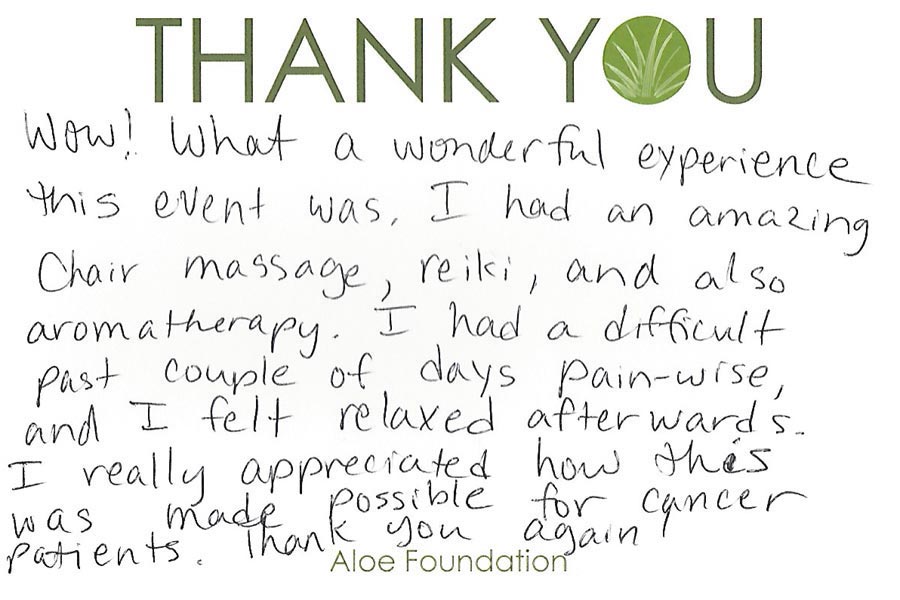 THANK YOU
Wow! What a wonderful experience
this event was. I had an amazing
Chair massage, reiki, and also
aromatherapy. I had a difficult
past couple of days pain-wise,
and I felt relaxed afterwards.
I really appreciated how this
was made possible for cancer
patients. Thank you again!
Aloe Foundation